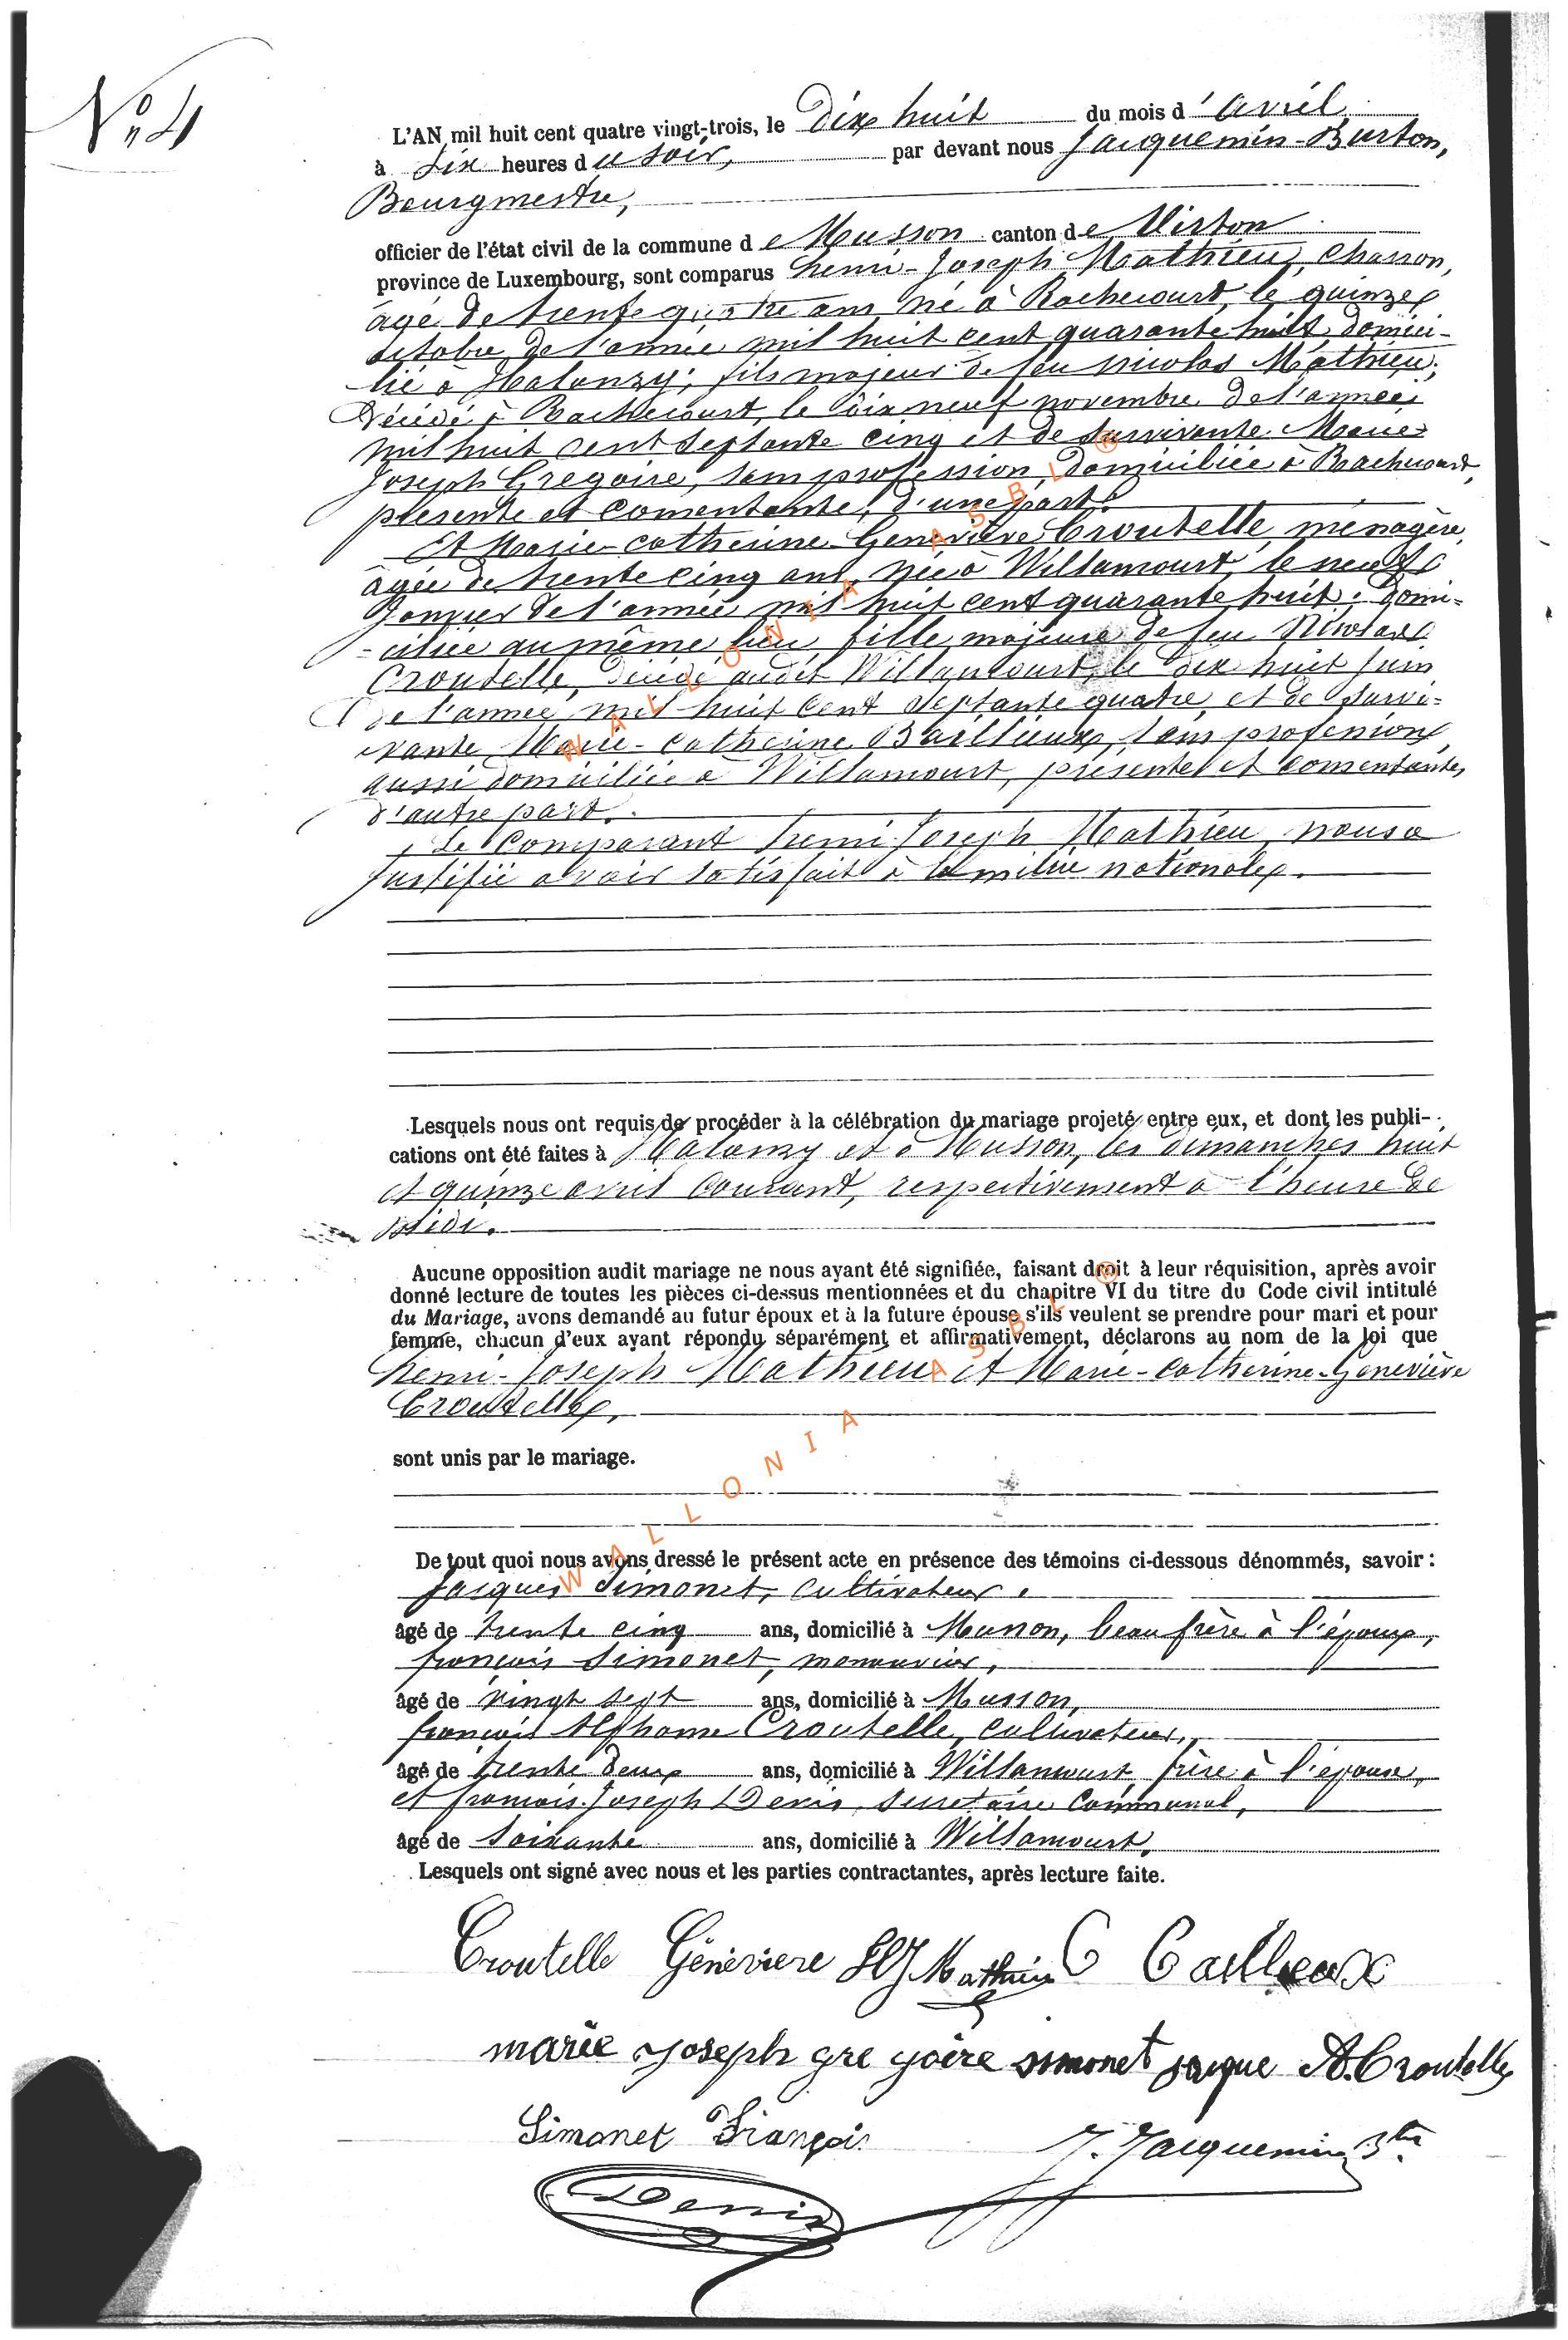 N° 4
L'AN mil huit cent quatre vingt-trois, le dix huit du mois d'avril
à six heures du soir, par devant nous Jacquemin-Burton,
Bourgmestre,
officier de l'état civil de la commune de Musson canton de Virton
province de Luxembourg, sont comparus henri-Joseph Mathieu, charron,
âgé de trente quatre ans, né à Rachecourt, le quinze
octobre de l'année mil huit cent quarante huit, domici-
lié à Halanzy; fils majeur de feu nicolas Mathieu,
décédé à Rachecourt, le dix neuf novembre de l'année
mil huit cent septante cinq et de survivante Marie
Joseph Gregoire, sans profession, domiciliée à Rachecourt,
présente et consentante, d'une part.
Et Marie-catherine-Geneviève Croutelle, ménagère,
âgée de trente cinq ans, née à Willancourt, le neuf
Janvier de l'année mil huit cent quarante huit, domi-
-ciliée au même lieu, fille majeure de feu Nicolas
Croutelle, décédé audit Willancourt, le dix huit Juin
de l'année mil huit cent septante quatre, et de survi-
vante Marie-catherine Baillieux, sans profession,
aussi domiciliée à Willancourt, présente et consentante,
d'autre part.
Le Comparant henri Joseph Mathieu, nous a
Justifié avoir satisfait à la milice nationale.
Lesquels nous ont requis de procéder à la célébration du mariage projeté entre eux, et dont les publi-
cations ont été faites à Halanzy et à Musson, les dimanches huit
et quinze avril courant, respectivement à l'heure de
Midi.
Aucune opposition audit mariage ne nous ayant été signifiée, faisant droit à leur réquisition, après avoir
donné lecture de toutes les pièces ci-dessus mentionnées et du chapitre VI du titre du Code civil intitulé
du Mariage, avons demandé au futur époux et à la future épouse s'ils veulent se prendre pour mari et pour
femme, chacun d'eux ayant répondu séparément et affirmativement, déclarons au nom de la loi que
henri-Joseph Mathieu et Marie-catherine-Geneviève
Croutelle,
sont unis par le mariage.
De tout quoi nous avons dressé le présent acte en présence des témoins ci-dessous dénommés, savoir :
Jacques Simonet, cultivateur,
âgé de trente cinq ans, domicilié à Musson, beau frère à l'époux,
françois Simonet, manouvrier,
âgé de vingt sept ans, domicilié à Musson,
françois Alphonse Croutelle, cultivateur,
âgé de trente deux ans, domicilié à Willancourt, frère à l'épouse,
et françois-Joseph Denis, secrétaire Communal,
âgé de soixante ans, domicilié à Willancourt.
Lesquels ont signé avec nous et les parties contractantes, après lecture faite.
Croutelle Géneviere HJ Mathieu C Cailleaux
marie joseph gre goire simonet jaque A. Croutelle
Simonet François J. Jacquemin Btn
Denis
WALLONIA ASBL ®
WALLONIA ASBL ®